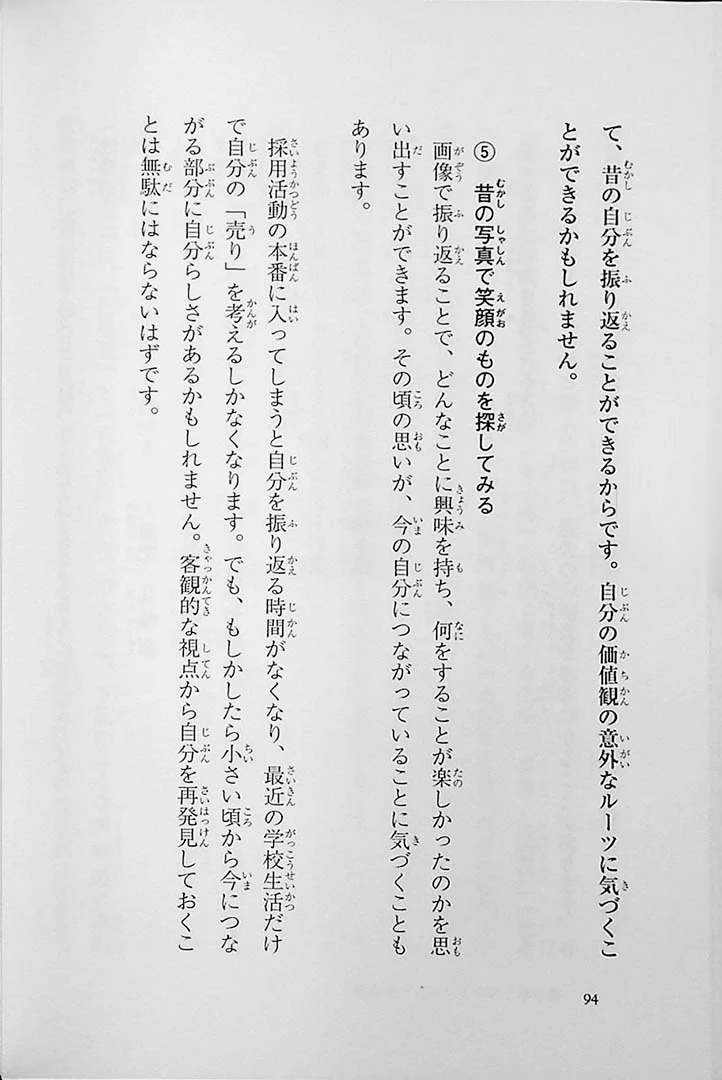 て、昔の自分を振り返ることができるからです。自分の価値観の意外なルーツに気づくこ
とができるかもしれません。
⑤ 昔の写真で笑顔のものを探してみる
画像で振り返ることで、どんなことに興味を持ち、何をすることが楽しかったのかを思
い出すことができます。その頃の思いが、今の自分につながっていることに気づくことも
あります。
採用活動の本番に入ってしまうと自分を振り返る時間がなくなり、最近の学校生活だけ
で自分の「売り」を考えるしかなくなります。でも、もしかしたら小さい頃から今につな
がる部分に自分らしさがあるかもしれません。客観的な視点から自分を再発見しておくこ
とは無駄にはならないはずです。
94